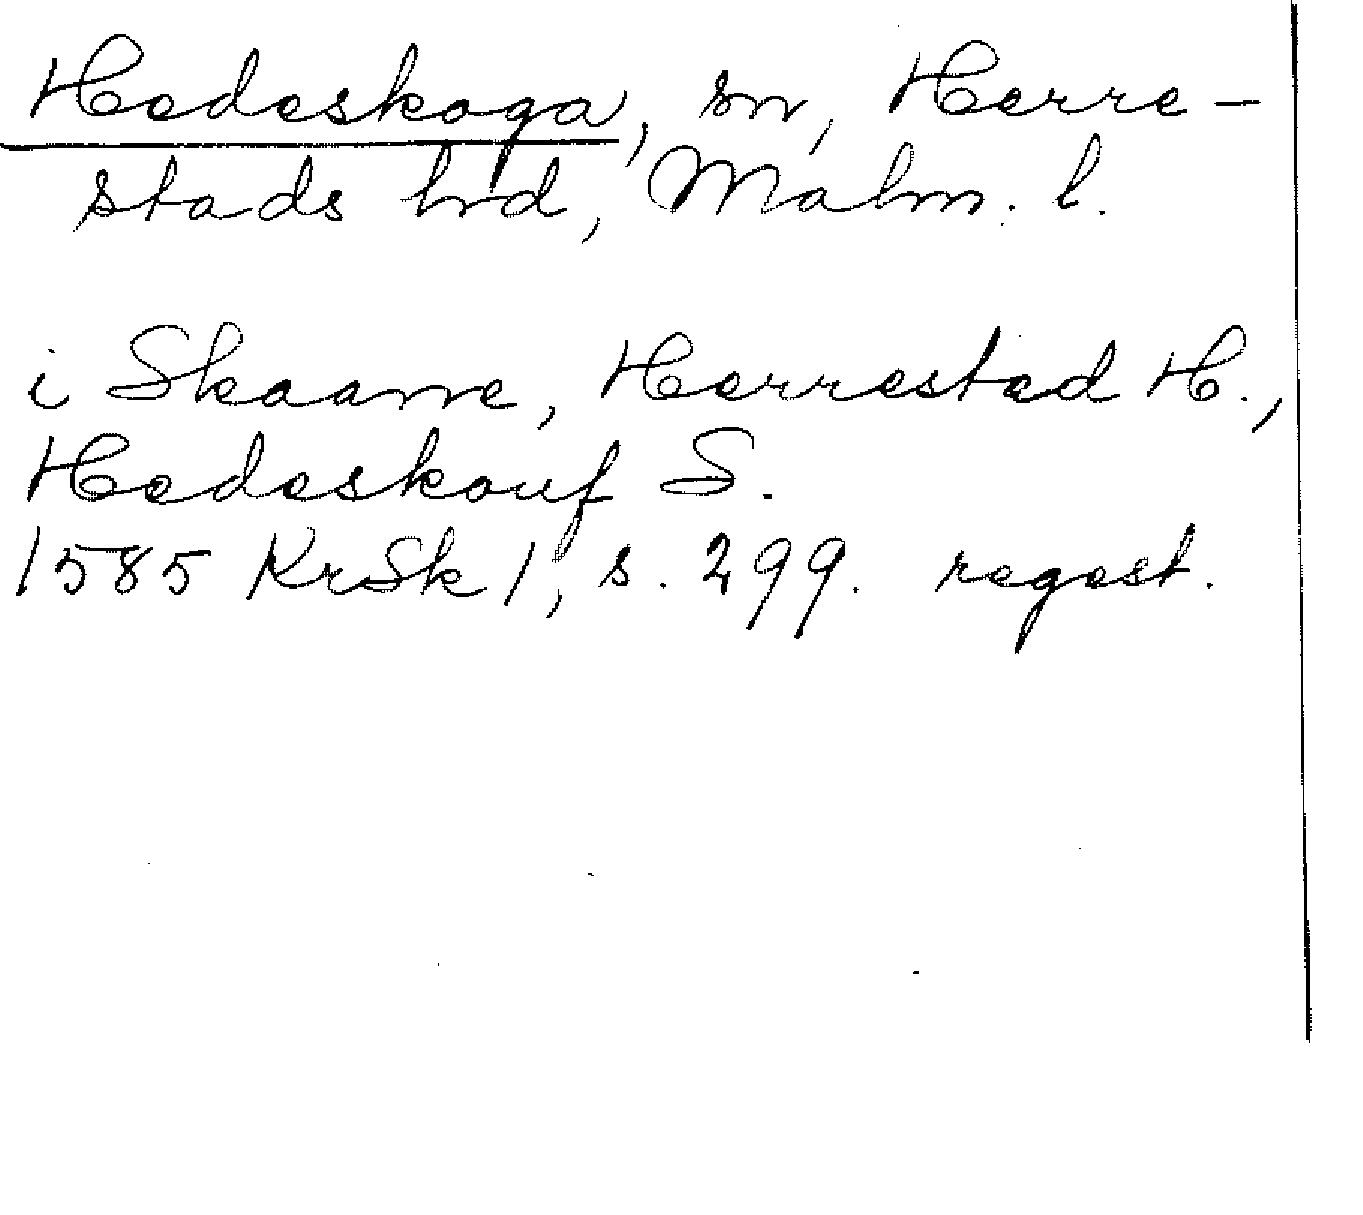 Hedeskoga, sn, Herre-
stads hrd, Malm. l.
i Skaane, Herrestad H.,
Hedeskouf S.
1585 KrSk 1, s. 299. regest.